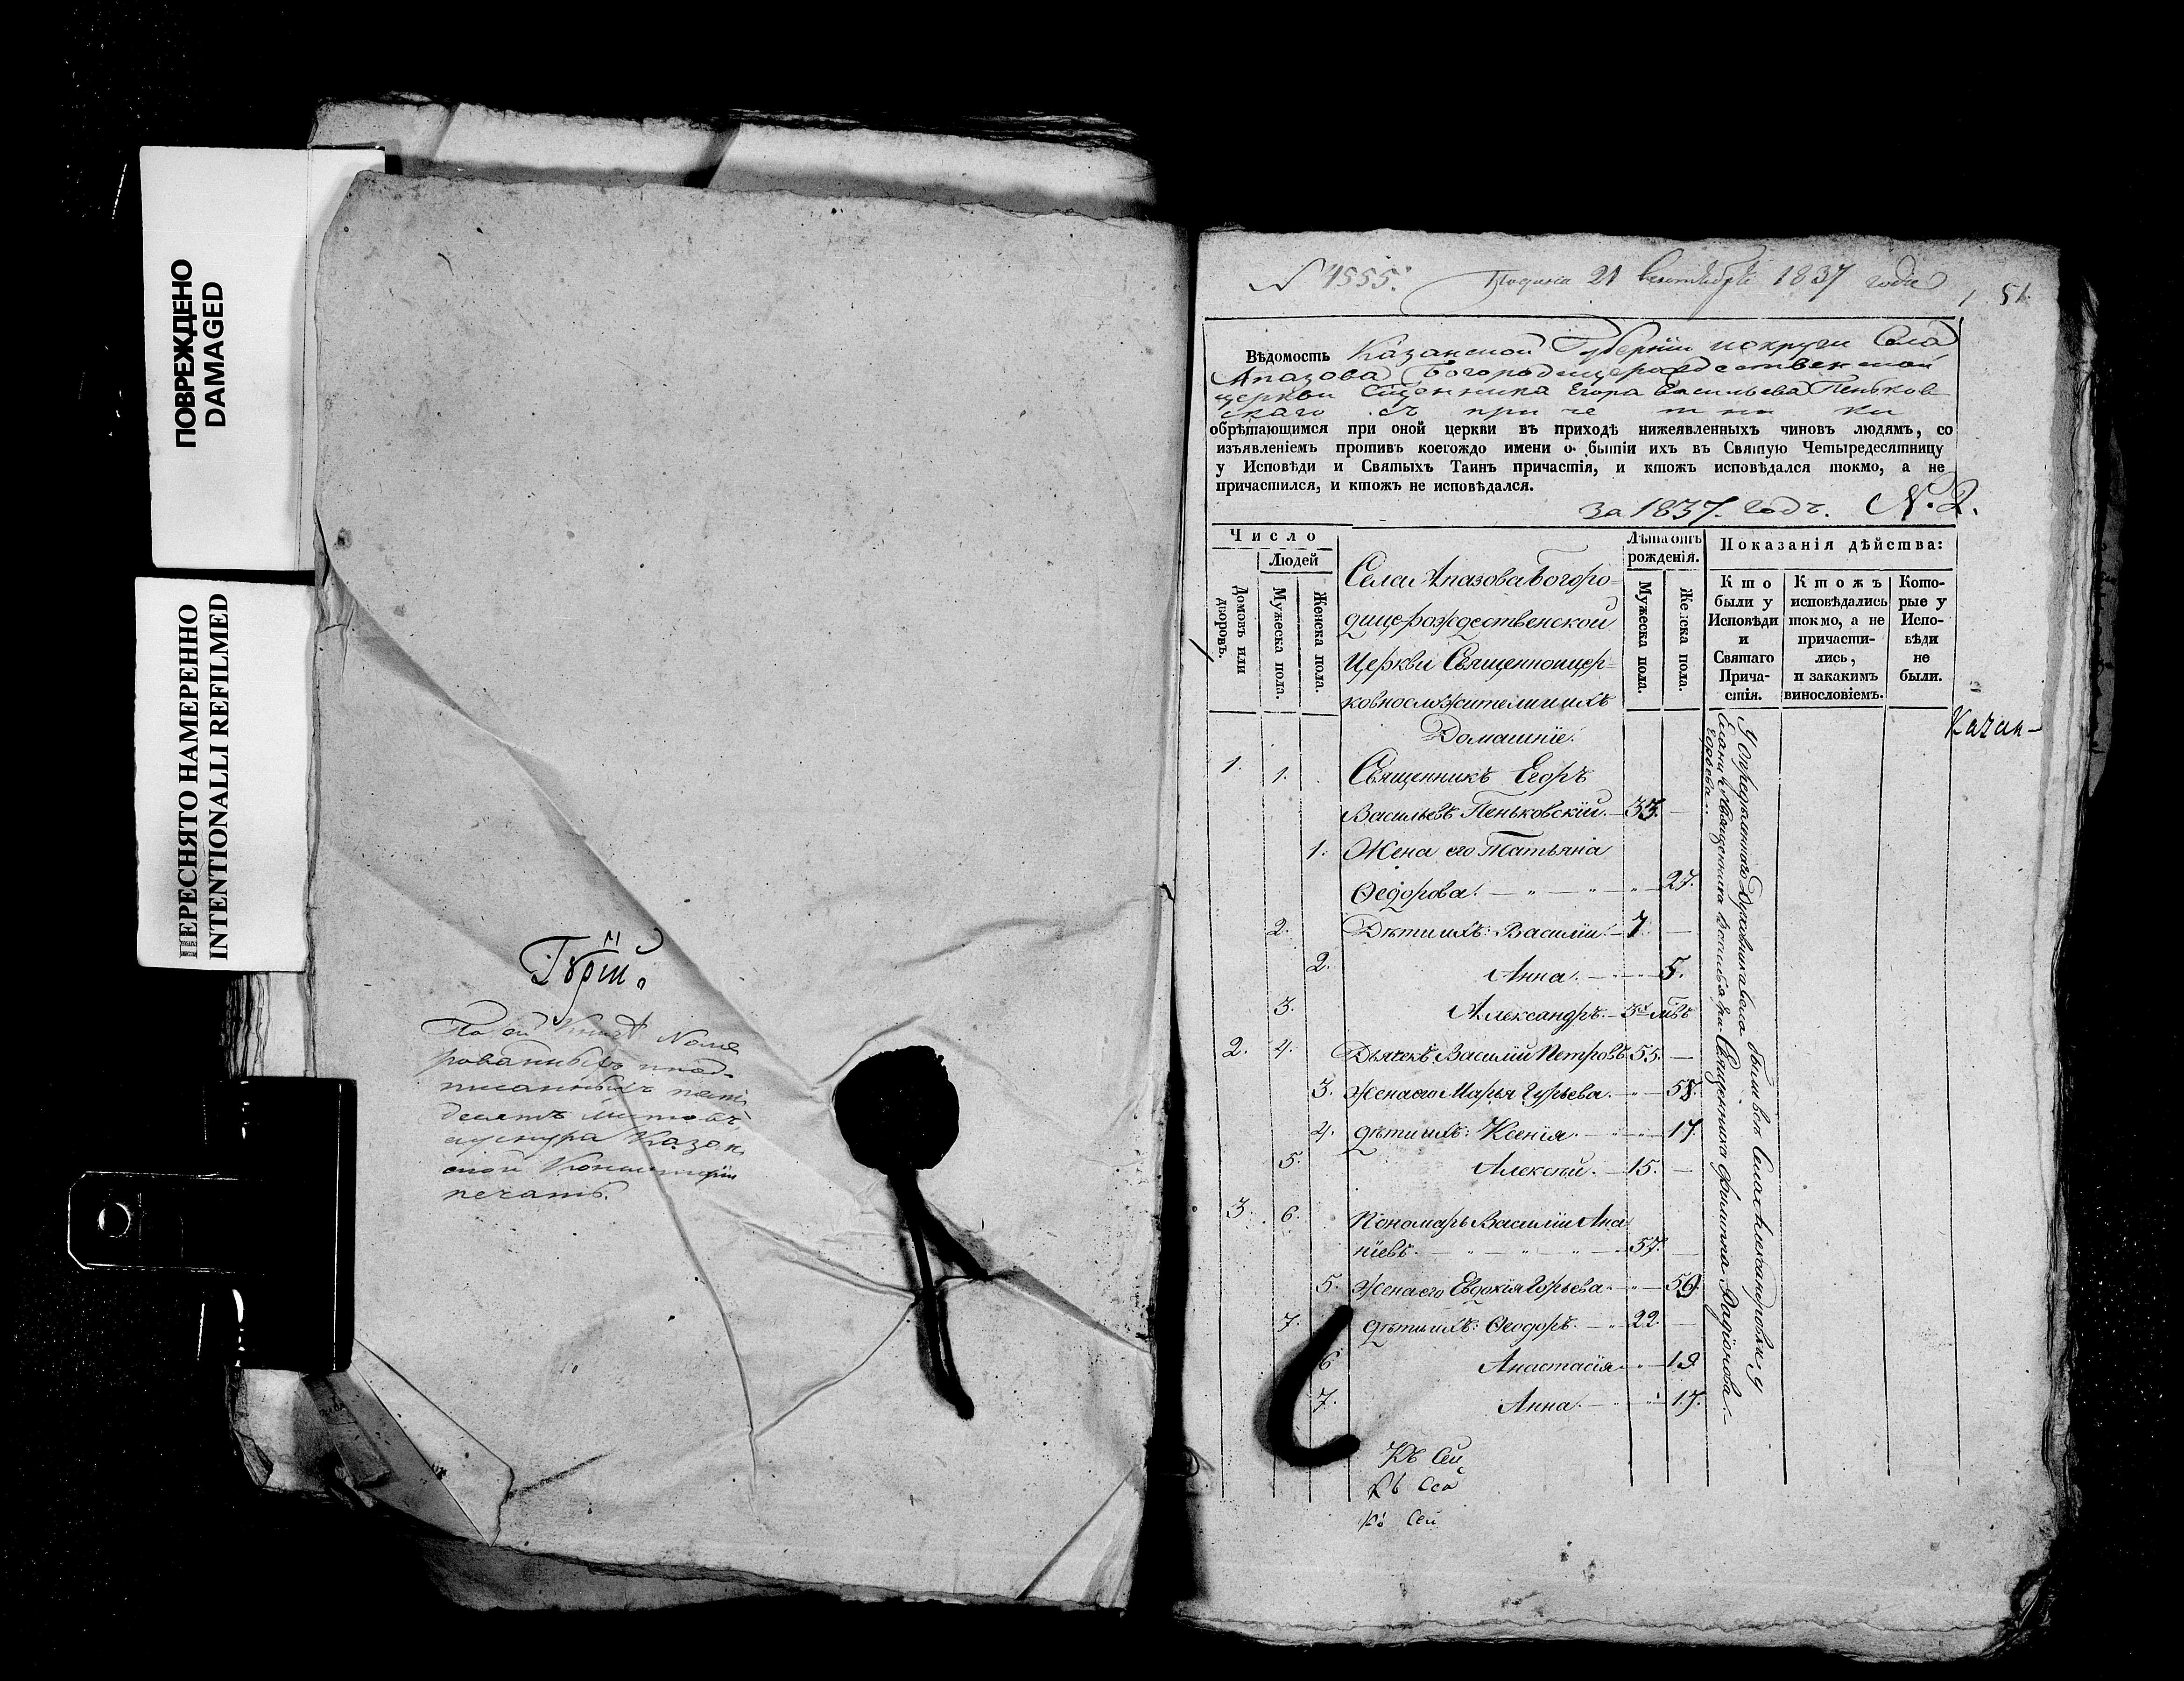 ПОВРЕЖДЕНО
DAMAGED
ПЕРЕСНЯТО НАМЕРЕННО
INTENTIONALLI REFILMED
рованныхъ и под-
писанныхъ пять
десятъ листовъ,
Казан
ской Консисторіи
печать.
№ 4555. Подана 21 Сентября 1837 года
51
Вѣдомость Казанской Губерніи и округи Села
Апазова Богородицерождественской
церкви Сщенника Егора Васильева Пеньков
скаго съ причетники
обрѣтающимся при оной церкви въ приходѣ нижеявленныхъ чиновъ людямъ, со
изъявленіемъ противъ коегождо имени о бытіи ихъ въ Святую Четыредесятницу
у Исповѣди и Святыхъ Таинъ причастія, и ктожъ исповѣдался токмо, а не
причастился, и ктожъ не исповѣдался.
за 1837. годъ. N. 2.
Число
Людей
Домовъ или дворовъ.
Мужеска пола.
Женска пола.
Лѣта отъ рожденія.
Мужеска пола.
Женска пола.
Показанія дѣйства:
Кто были у Исповѣди и Святаго Прича-стія.
Ктожъ исповѣдались токмо, а не причасти-лись, и закакимъ винословіемъ.
Кото-рые у Испо-вѣди не были.
Села Апазова Богоро-
дицерождественской
Церкви Священноцер-
ковнослужители и ихъ
Домашніе.
Казан-
1. 1. Священникъ Егоръ
Васильевъ Пеньковскій. 33.
1. Жена его Татьяна
Ѳедорова. 27.
2. Дѣти ихъ: Василій. 7.
2. Анна. 5.
3. Александръ.
2. 4. Дьячекъ Василій Петровъ 55.
3. Жена его Марья Гурьева. 58.
4. дѣти ихъ: Ксенія. 17.
5. Алексѣй. 15.
3. 6. Пономарь Василій Ана
ніевъ. 57.
5. Жена его Евдокія 59.
7. дѣти ихъ: Ѳеодоръ. 22.
6 Анастасія 19
7. Анна. 17.
У Опредѣленнаго Духовника были въ Селѣ Александровки у
Священника Филиппа Радіонова.
Къ Сей
Къ Сей
Къ Сей